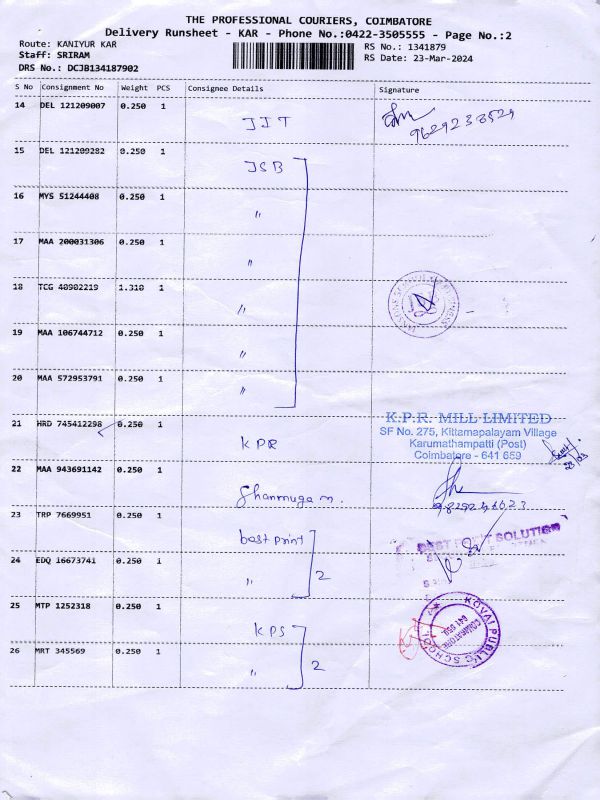 THE PROFESSIONAL COURIERS, COIMBATORE
Delivery Runsheet - KAR - Phone No.:0422-3505555 - Page No.:2
Route: KANIYUR KAR
RS No.: 1341879
Staff: SRIRAM
RS Date: 23-Mar-2024
DRS No.: DCJB134187902
S No Consignment No Weight PCS Consignee Details Signature
14 DEL 121209007 0.250 1 JIT
9629233529
15 DEL 121209282 0.250 1 JSB
16 MYS 51244408 0.250 1 "
17 MAA 200031306 0.250 1 "
18 TCG 40902219 1.310 1 "
19 MAA 106744712 0.250 1 "
20 MAA 572953791 0.250 1 "
21 HRD 745412298 0.250 1 KPR
K.P.R. MILL LIMITED
SF No. 275, Kittampalayam Village
Karumathampatti (Post)
Coimbatore - 641 659
23/03
22 MAA 943691142 0.250 1 Shanmuga m.
23 TRP 7669951 0.250 1 best print
BEST PRINT SOLUTION
24 EDQ 16673741 0.250 1 " 2
25 MTP 1252318 0.250 1 KPS
KOVAI PUBLIC SCHOOL
COIMBATORE
641 659
26 MRT 345569 0.250 1 " 2